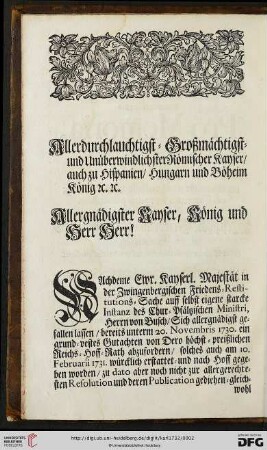 Allerdurchlauchtigst- Großmächtigst-
und Unüberwindlichster Römischer Kayser/
auch zu Hispanien/ Hungarn und Böheim
König ꝛc. ꝛc.
Allergnädigster Kayser, König und
Herr Herr!
Nachdeme Ewr. Kayserl. Majestät in
der Zwingenbergischen Friedens-Resti-
tutions-Sache auff selbst eigene starcke
Instanz des Chur-Pfältzischen Ministri,
Herrn von Busch/ Sich allergnädigst ge-
fallen lassen/ bereits unterm 20. Novembris 1730. ein
grund-vestes Gutachten von Dero höchst-preißlichen
Reichs-Hoff-Rath abzufordern/ solches auch am 10.
Februarii 1731. würcklich erstattet-und nach Hoff gege-
ben worden/ zu dato aber noch nicht zur allergerechte-
sten Resolution und deren Publication gediehen-gleich-
wohl
http://digi.ub.uni-heidelberg.de/diglit/kurl1732/0002
© Universitätsbibliothek Heidelberg